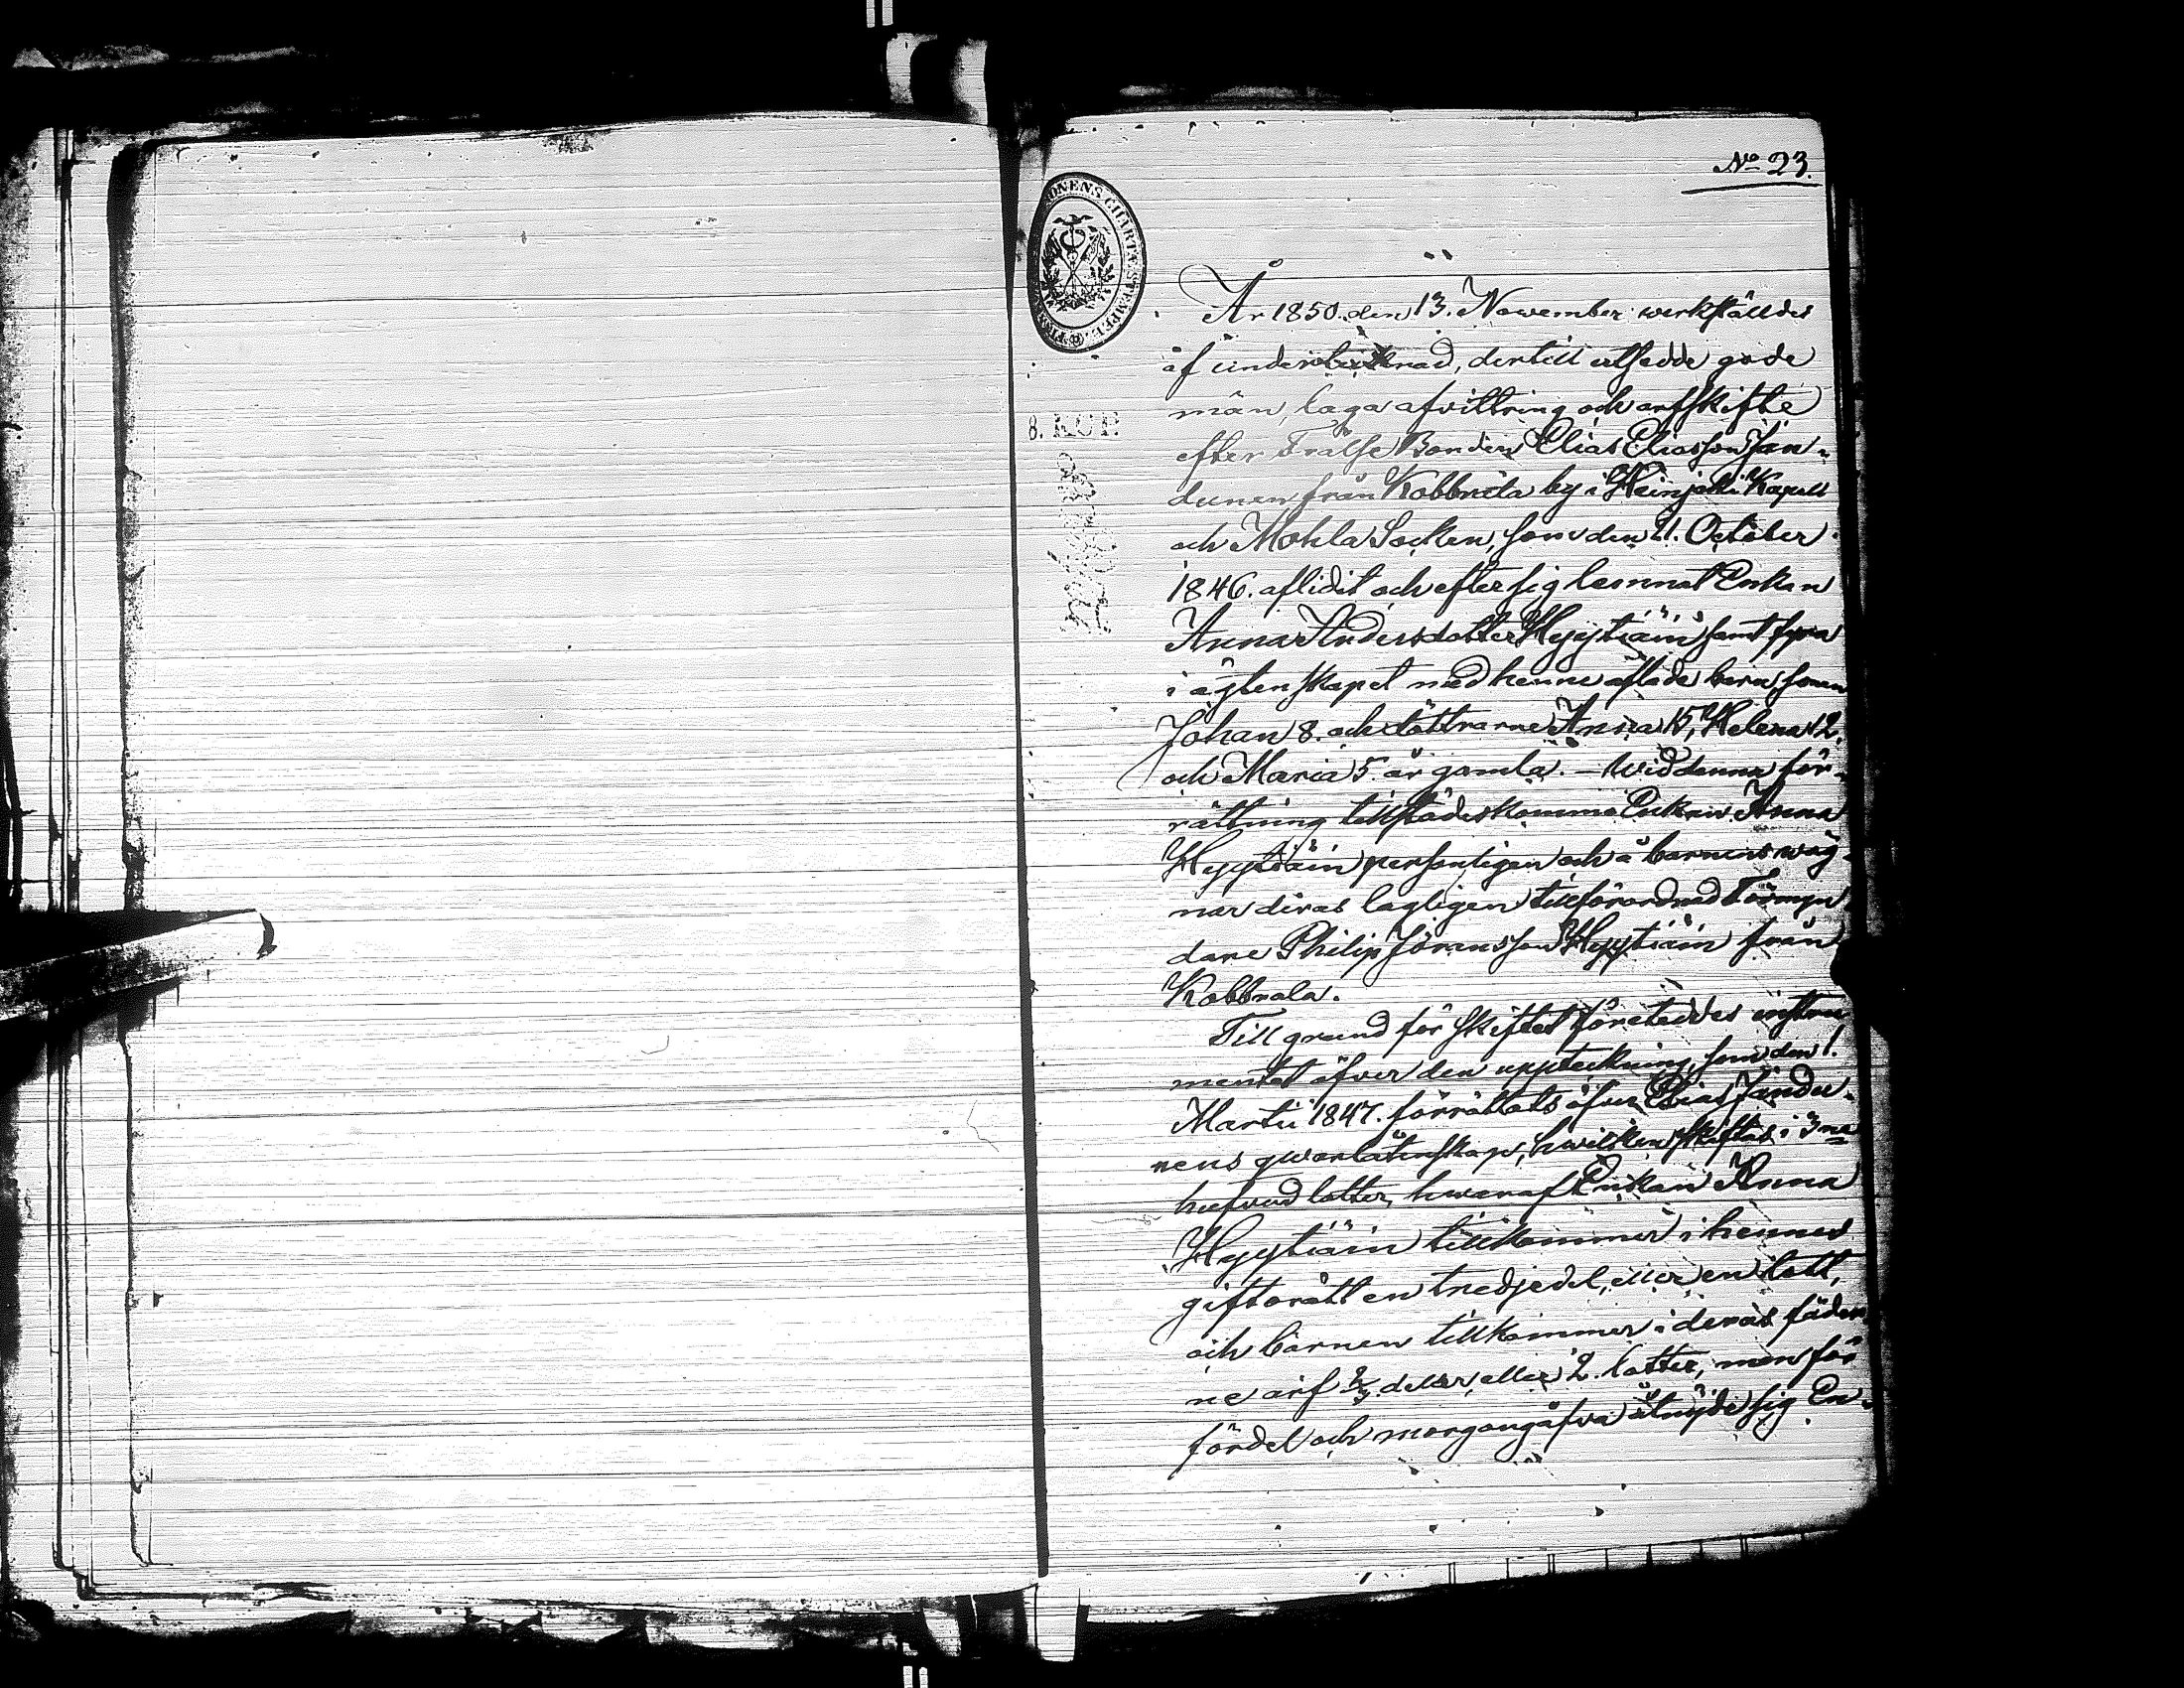 No 23.
8. KOP.
År 1850. den 13. November werkställdes
af undertecknad, dertill utsedde gode
män, laga afvittring och arfskifte
efter Frälse Bonden Elias Eliasson Jän-
dunen från Kobbrala by i Heinjoki Kapell
och Mohla Socken, som den 21. October
1846. aflidit och efter sig lemnat Enkan
Anna Andersdotter Hyytiäin samt fyra
i ägtenskapet med henne aflade barn, sonen
Johan 8. och döttrarne Anna 15, Helena 12,
och Maria 5. år gamla. – Wid denna för-
rättning tillstädeskommo Enkan Anna
Hyytiäin personligen och å barnens wäg-
nar deras lagligen tillförordnad Förmyn
dare Philip Jöransson Hyytiäin från
Kobbrala.
Till grund för skiftet företeddes instru
mentet öfver den uppteckning, som den 1.
Martii 1847. förrättats öfver Elias Jändu-
nens qvarlåtenskap, hwilken skiftas i 3ne
hufvudlotter, hwaraf Enkan Anna
Hyytiäin tillkommer i hennes
giftorätt en tredjedel, eller en lott,
och barnen tillkommer i deras fäder
ne arf 2/3 delar, eller 2. lotter, men för
fördel och morgongåfva åtnöjde sig En-